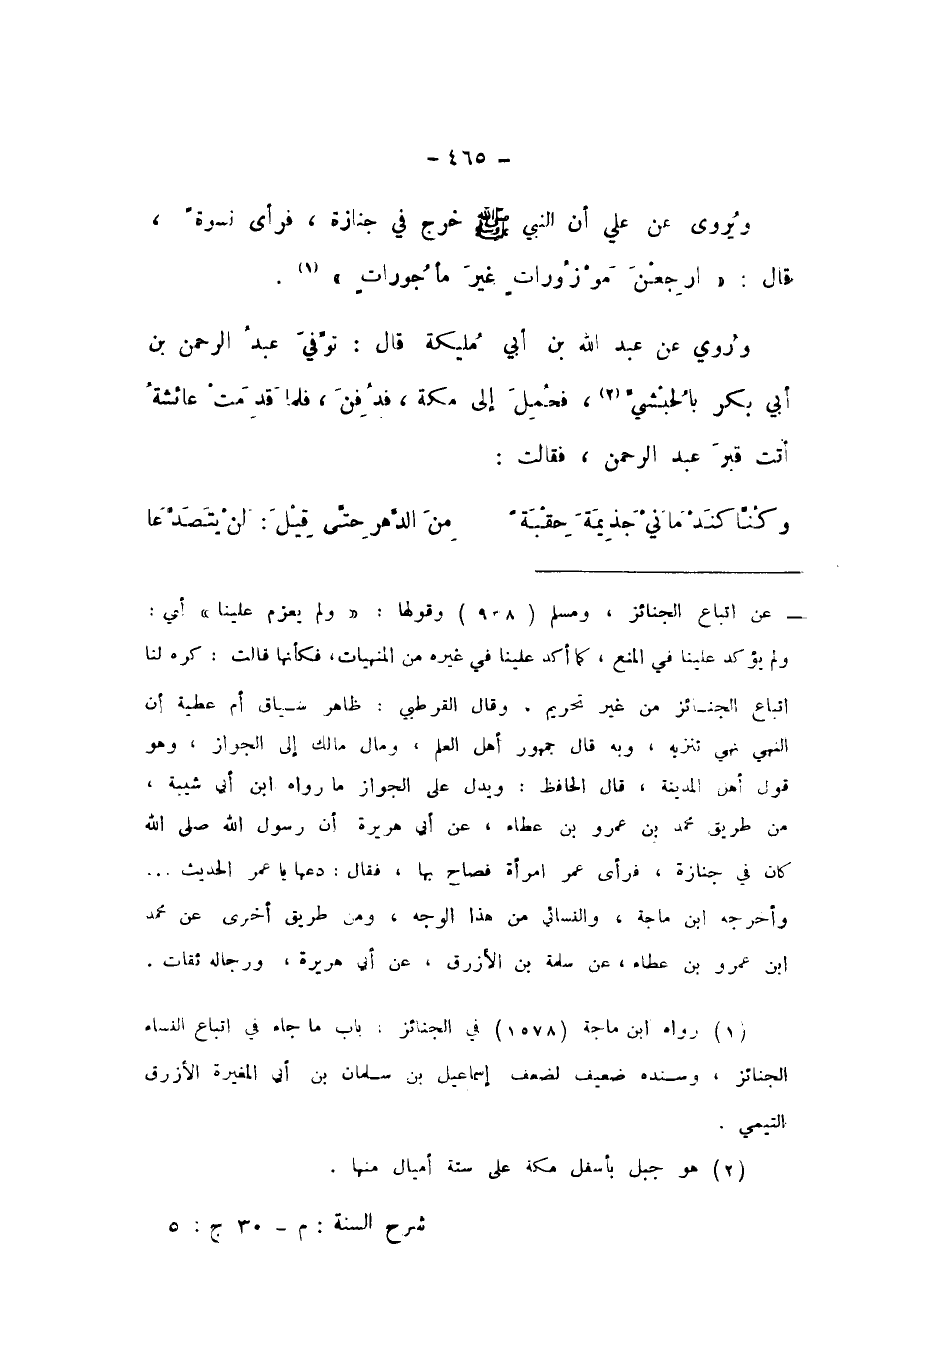 - ٤٦٥ -
ويُروى عن علي أن النبي ﷺ خرج في جنازة ، فرأى نسوةً ،
قال : « ارجِعْنَ مَوْزُوراتٍ غيرَ مأجُوراتٍ » (١) .
ورُوي عن عبد الله بن أبي مُليكة قال : توُفِّيَ عبدُ الرحمن بن
أبي بكر بالحُبْشيّ (٢) ، فحُمِلَ إلى مكة ، فدُفِنَ ، فلما قَدِمَتْ عائشةُ
أتت قبرَ عبد الرحمن ، فقالت :
وكُنَّا كنَدْمَانَيْ جَذِيمَةَ حِقْبَةً مِنَ الدَّهرِ حتَّى قِيْلَ : لَنْ يَتَصَدَّعَا
ــ عن اتباع الجنائز ، ومسلم ( ٩٠٨ ) وقولها : « ولم يعزم علينا » أي :
ولم يؤكد علينا في المنع ، كما أكد علينا في غيره من المنهيات، فكأنها قالت : كره لنا
اتباع الجنائز من غير تحريم . وقال القرطبي : ظاهر سياق أم عطية أن
النهي نهي تنزيه ، وبه قال جمهور أهل العلم ، ومال مالك إلى الجواز ، وهو
قول أهل المدينة ، قال الحافظ : ويدل على الجواز ما رواه ابن أبي شيبة ،
من طريق محمد بن عمرو بن عطاء ، عن أبي هريرة أن رسول الله صلى الله
كان في جنازة ، فرأى عمر امرأة فصاح بها ، فقال : دعها يا عمر الحديث ...
وأخرجه ابن ماجة ، والنسائي من هذا الوجه ، ومن طريق أخرى عن محمد
ابن عمرو بن عطاء ، عن سلمة بن الأزرق ، عن أبي هريرة ، ورجاله ثقات .
(١) رواه ابن ماجة (١٥٧٨) في الجنائز : باب ما جاء في اتباع النساء
الجنائز ، وسنده ضعيف لضعف إسماعيل بن سلمان بن أبي المغيرة الأزرق
التيمي .
(٢) هو جبل بأسفل مكة على ستة أميال منها .
شرح السنة : م - ٣٠ ج : ٥